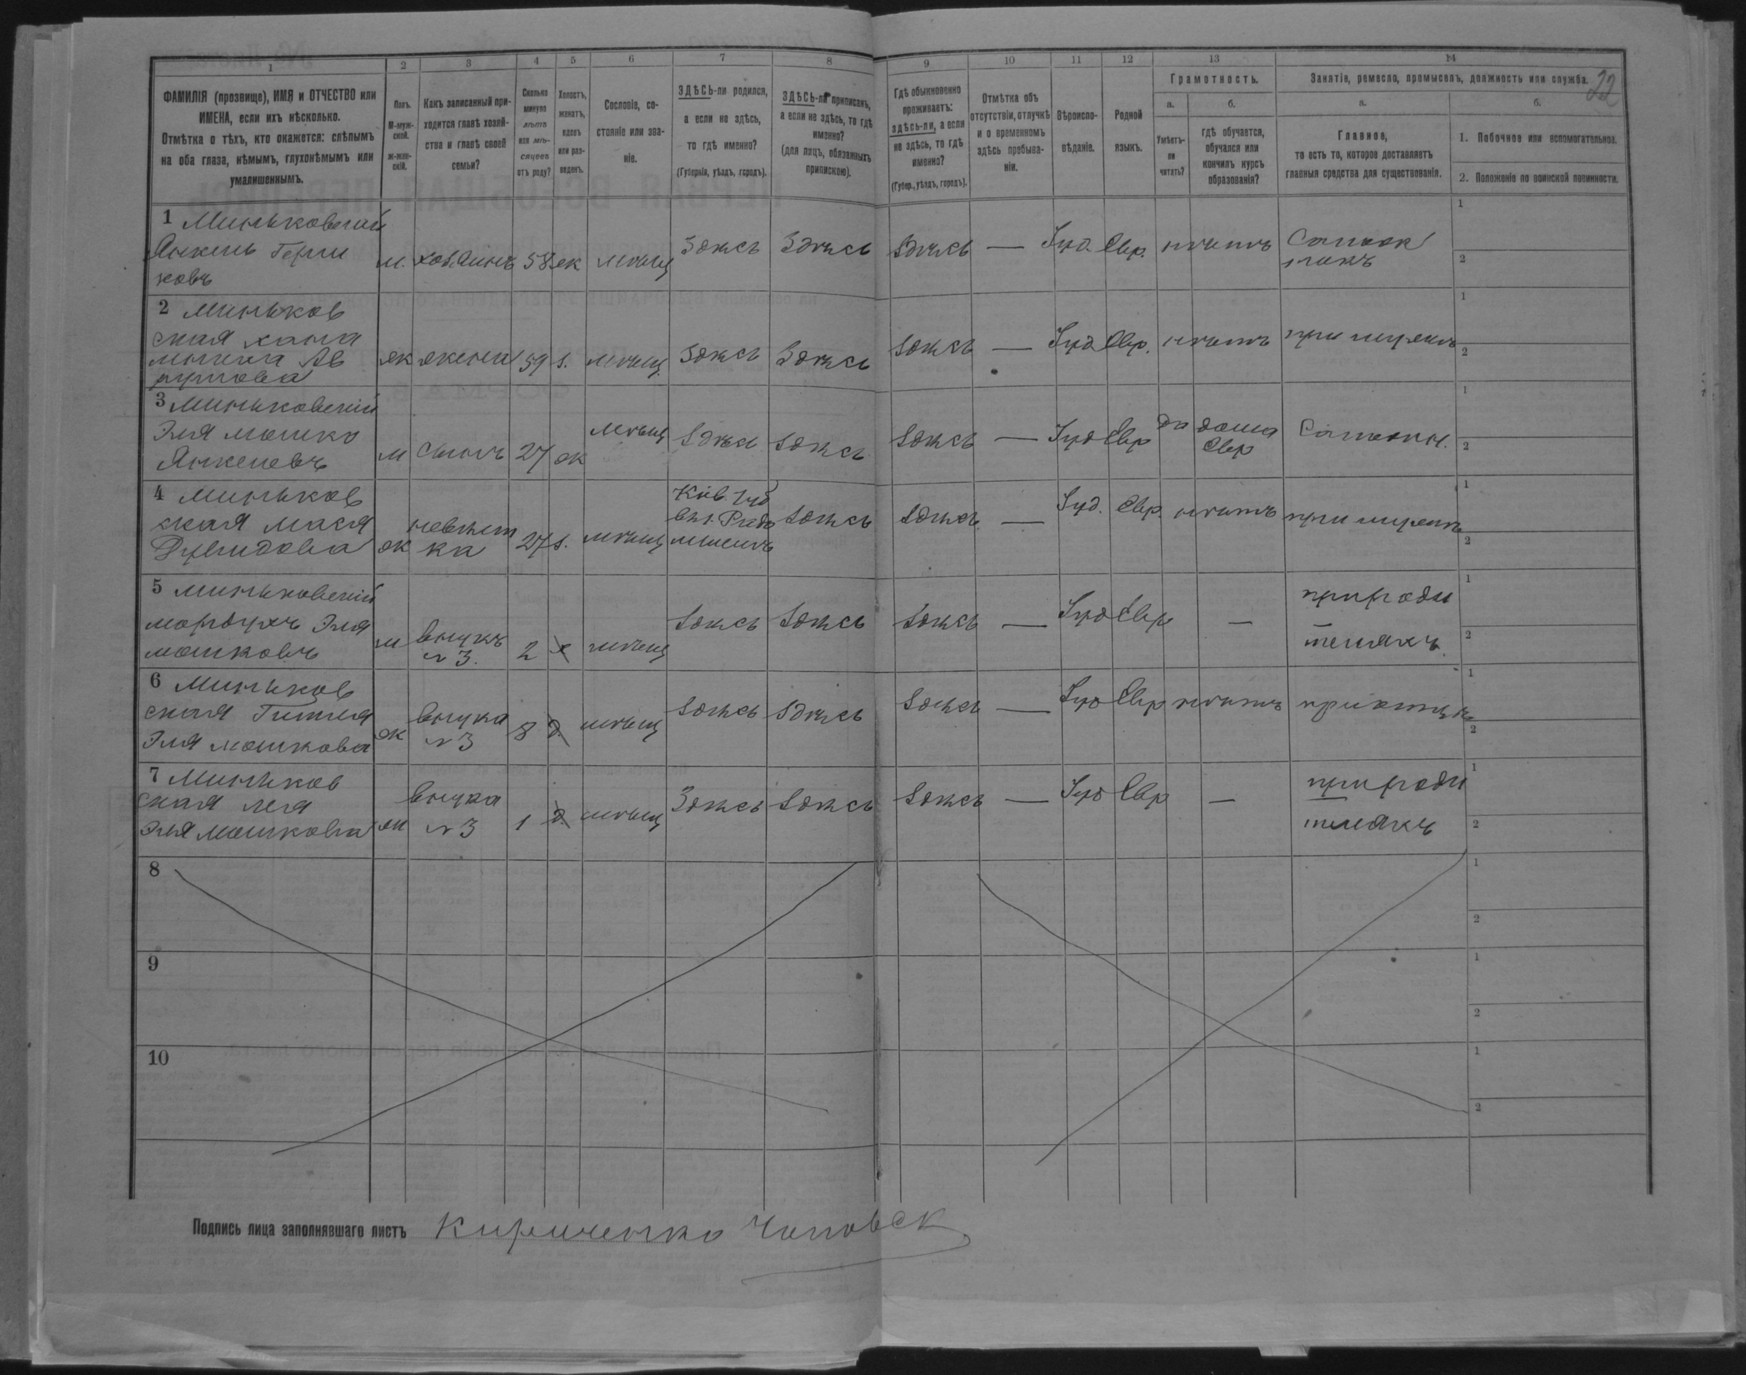 1 2 3 4 5 6 7 8 9 10 11 12 13 14
22
ФАМИЛІЯ (прозвище), ИМЯ и ОТЧЕСТВО или ИМЕНА, если ихъ нѣсколько.
Отмѣтка о тѣхъ, кто окажется: слѣпымъ на оба глаза, нѣмымъ, глухонѣмымъ или умалишеннымъ.
Полъ.
М-мужской.
ж-женскій.
Какъ записанный приходится главѣ хозяйства и главѣ своей семьи?
Сколько минуло лѣтъ или мѣсяцевъ отъ роду?
Холостъ, женатъ, вдовъ или разведенъ.
Сословіе, состояніе или званіе.
ЗДѢСЬ-ли родился, а если не здѣсь, то гдѣ именно?
(Губернія, уѣздъ, городъ).
ЗДѢСЬ-ли приписанъ, а если не здѣсь, то гдѣ именно?
(для лицъ, обязанныхъ припискою).
Гдѣ обыкновенно проживаетъ: здѣсь-ли, а если не здѣсь, то гдѣ именно?
(Губер., уѣздъ, городъ).
Отмѣтка объ отсутствіи, отлучкѣ и о временномъ здѣсь пребываніи.
Вѣроисповѣданіе.
Родной языкъ.
Грамотность.
а.
Умѣетъ-ли читать?
б.
гдѣ обучается, обучался или кончилъ курсъ образованія?
Занятіе, ремесло, промыселъ, должность или служба.
а.
Главное,
то есть то, которое доставляетъ главныя средства для существованія.
б.
1. Побочное или вспомогательное.
2. Положеніе по воинской повинности.
1 Миньковский
Янкель Герш
ковъ
м. хозяинъ 58 ж мѣщ Здѣсь Здѣсь Здѣсь — Іуд. Евр. нѣтъ
2 Миньков
ская Хана
ж жена 59 з. мѣщ. Здѣсь Здѣсь Здѣсь — Іуд Евр. нѣтъ при мужѣ
3 Миньковскій
Эля Мошко
Янкелевъ
м сынъ 27 ж мѣщ Здѣсь Здѣсь Здѣсь — Іуд Евр да дома
Евр
4 Миньков
ская Мася
Дувидова
ж невѣст
ка 27 з. мѣщ Кіев Губ
Здѣсь Здѣсь — Іуд. Евр. нѣтъ при мужѣ
5 Миньковскій
Мордухъ Эля
Мошковъ
м внукъ
№ 3. 2 х мѣщ Здѣсь Здѣсь Здѣсь — Іуд Евр — при роди
теляхъ.
6 Миньков
ская Гитля
Эля Мошкова
ж внука
№ 3 8 д. мѣщ Здѣсь Здѣсь Здѣсь — Іуд Евр нѣтъ при отцѣ
7 Миньков
ская Лея
Эля Мошкова
ж внука
№ 3 1 д. мѣщ Здѣсь Здѣсь Здѣсь — Іуд Евр — при роди
теляхъ
8
9
10
Подпись лица заполнявшаго листъ Кириченко